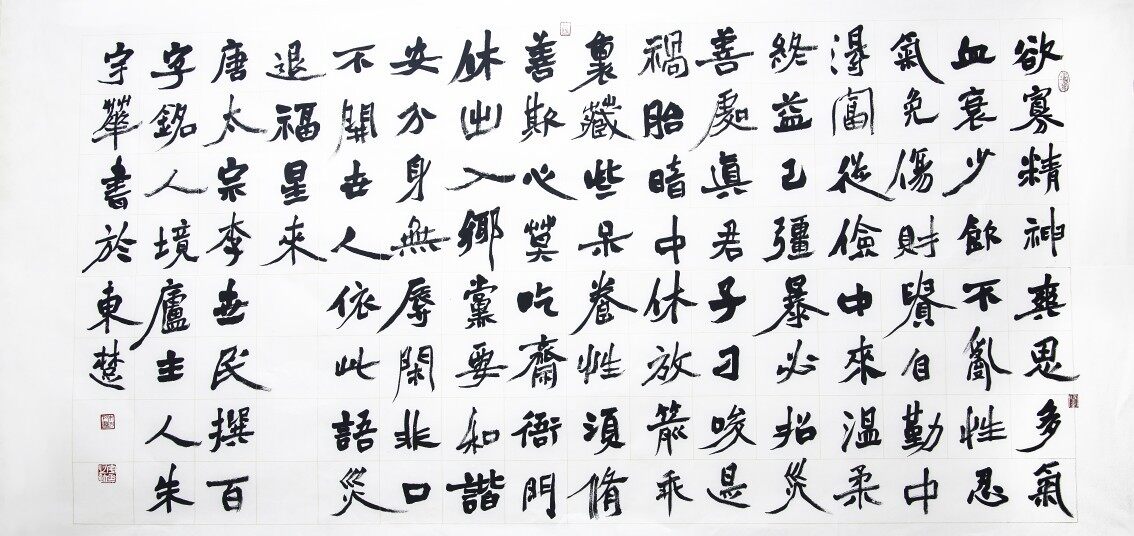 欲寡精神爽思多氣
血衰少飲不亂性忍
氣免傷財貴自勤中
得富從儉中來溫柔
終益己彊暴必招災
善處眞君子刁唆是
禍胎暗中休放箭乖
裏藏些呆養性須脩
善欺心莫吃齋衙門
休出入鄉黨要和諧
安分身無辱閑非口
不開世人依此語災
退福星來
唐太宗李世民撰百
字銘人境廬主人朱
宇華書於東楚